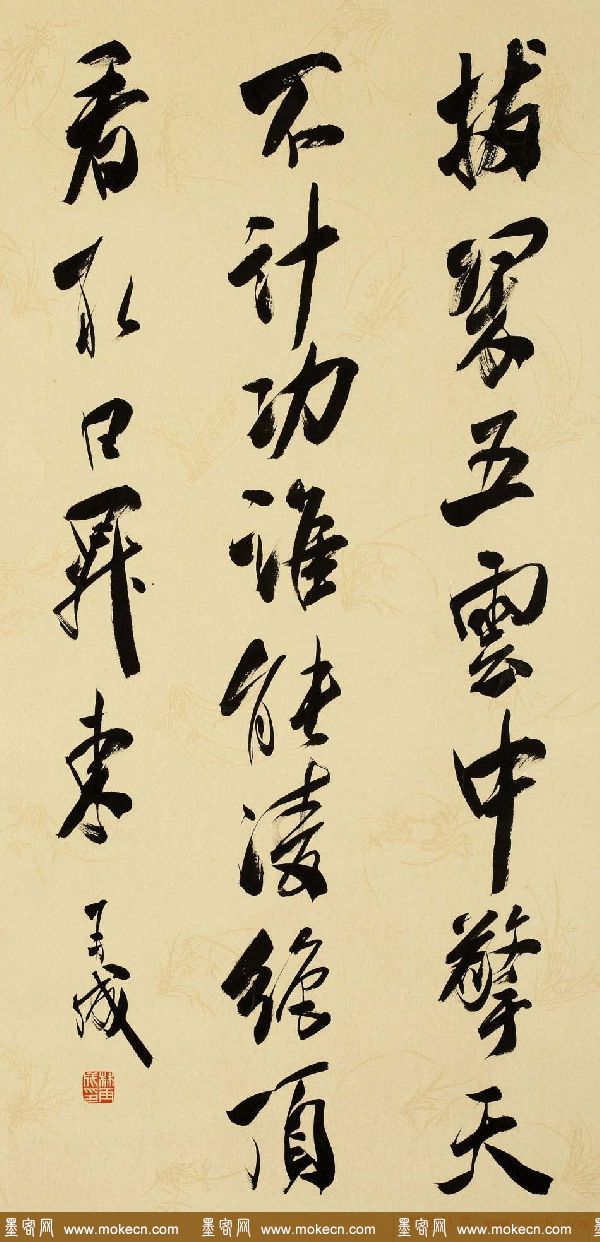 拔翠五雲中擎天
不計功誰能凌絕頂
看取日昇東
墨客网 www.mokecn.com 墨客网 www.mokecn.com 墨客网 www.mokecn.com